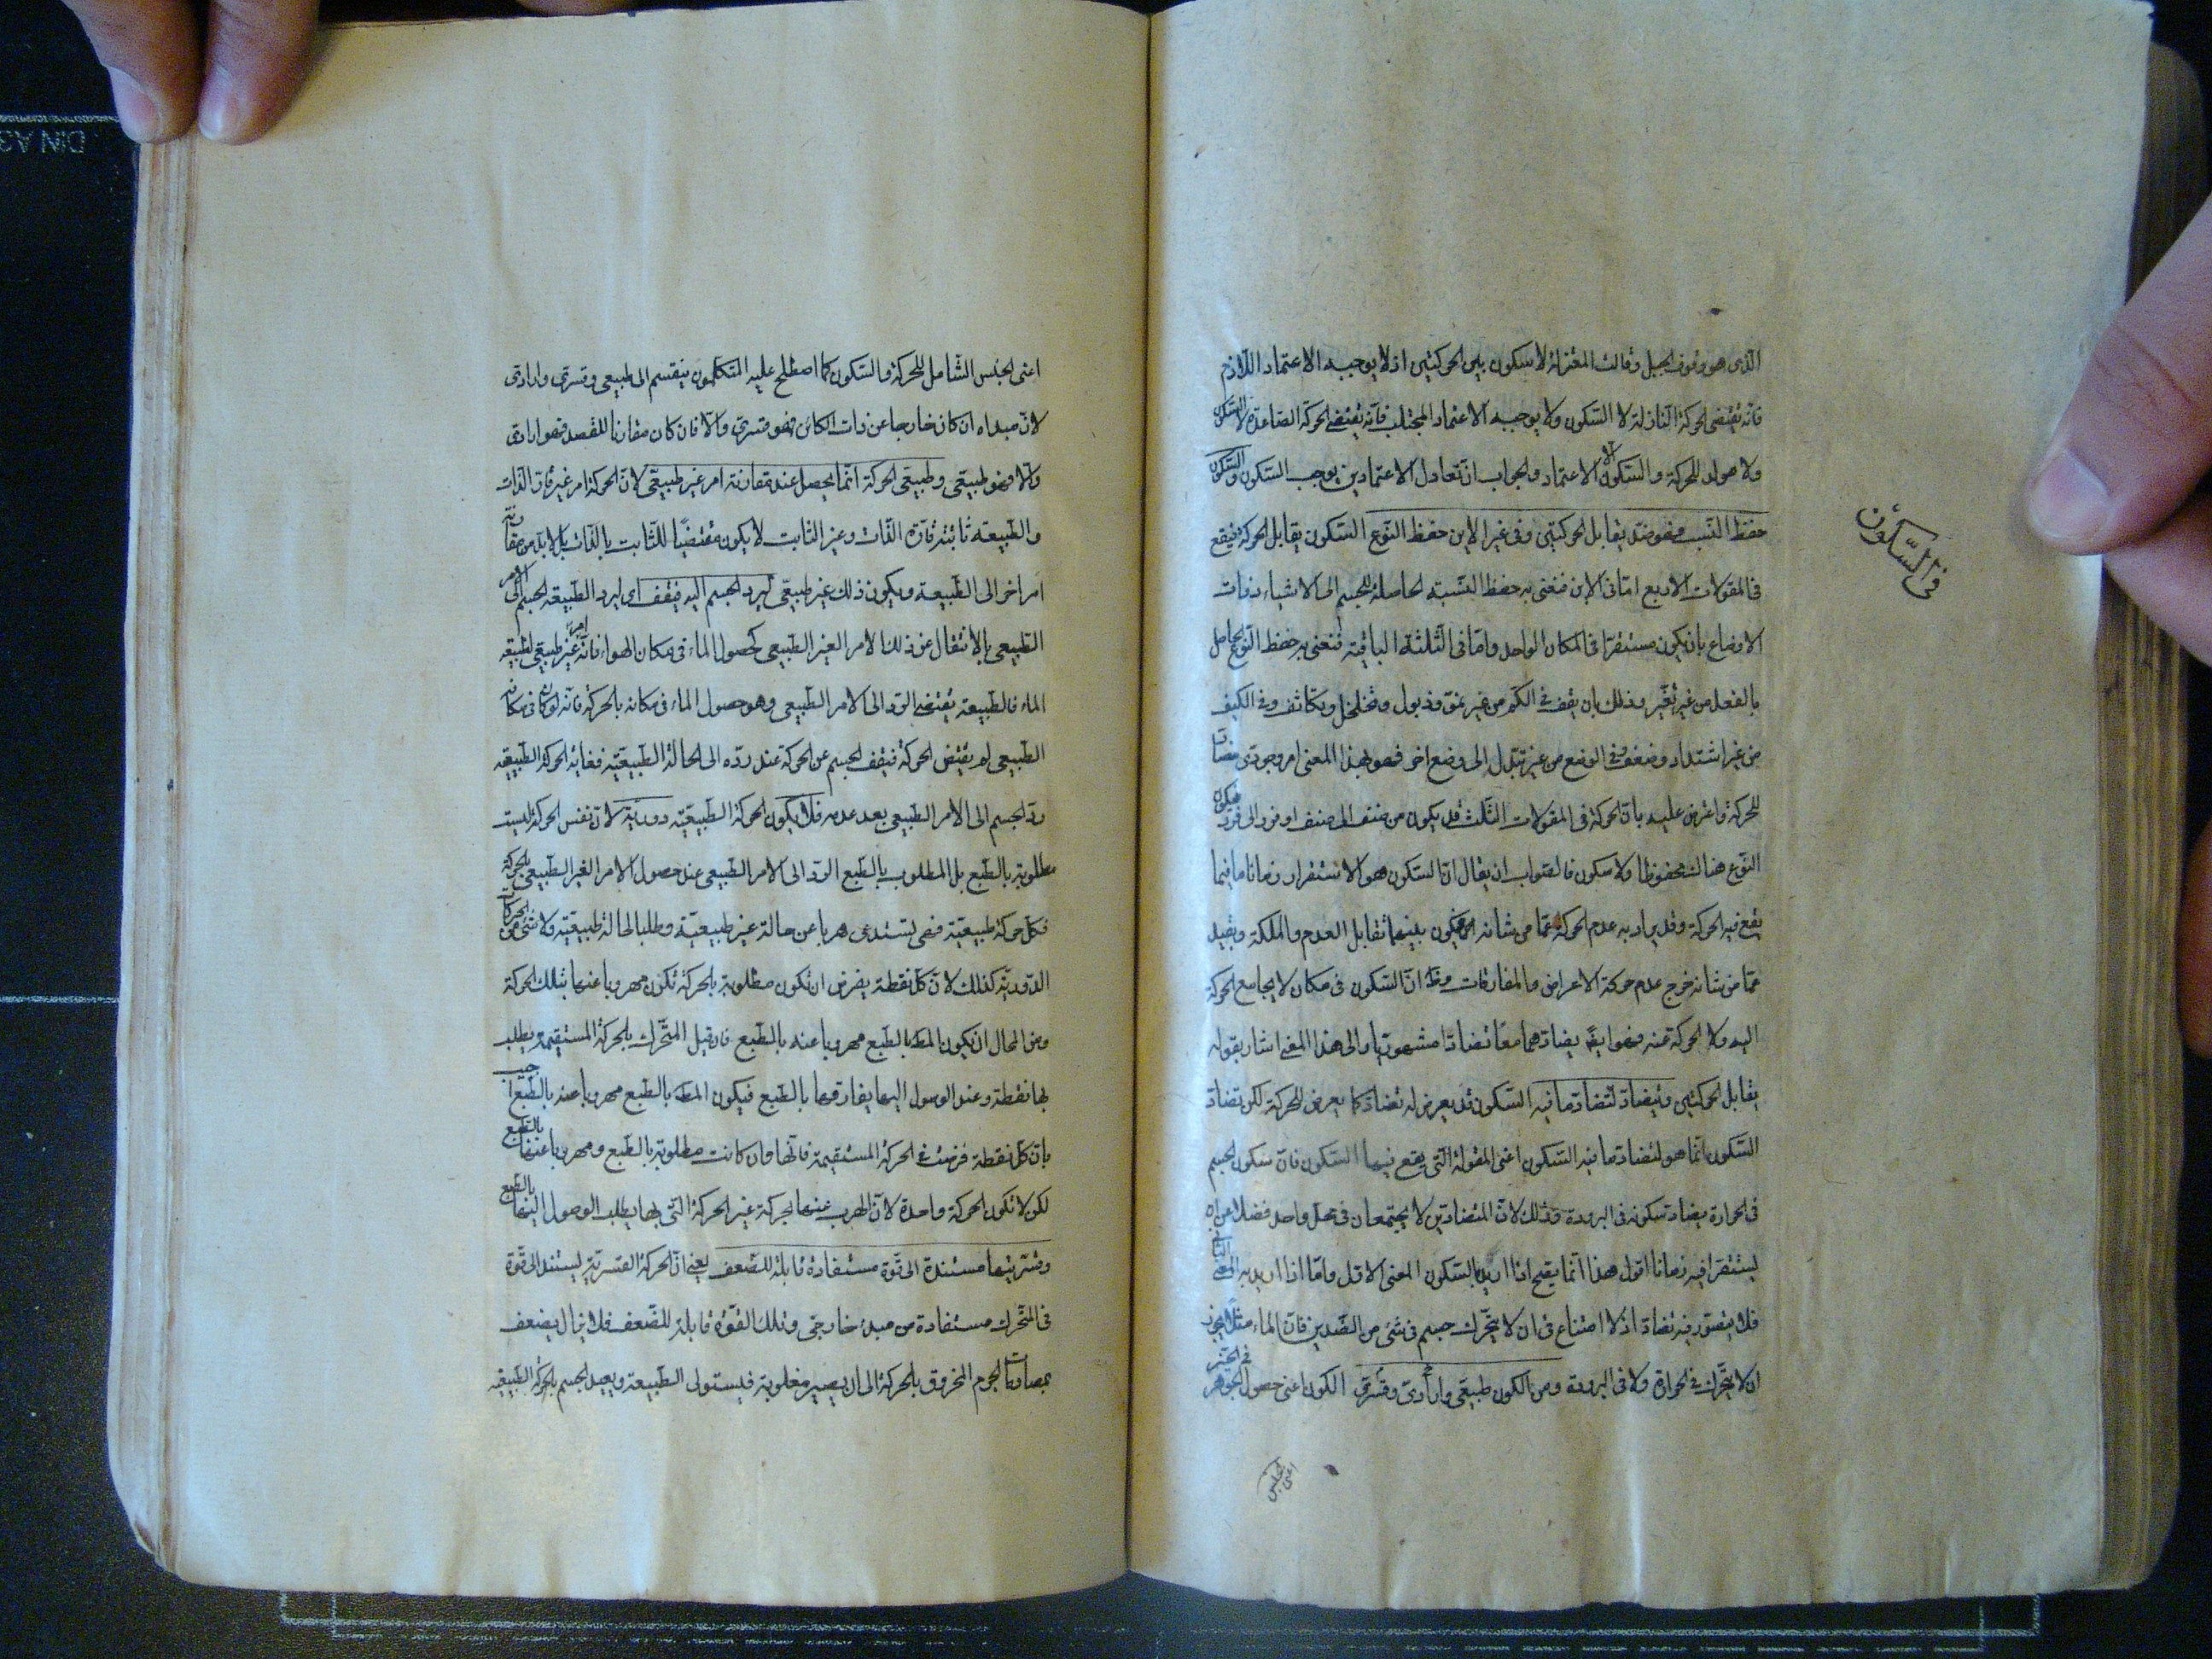 الذى هو وقوف الجبل وقالت المعتزلة لا سكون بين الحركتين اذ لا يوجبه الاعتماد اللازم
فانه يقتضى الحركة النازلة لا السكون ولا يوجبه الاعتماد المجتلب فانه يقتضى الحركة الصاعدة لا السكون
ولا مولد للحركة والسكون الا الاعتماد والجواب ان تعادل الاعتمادين يوجب السكون والسكون
حفظ النسب فهو ضد يقابل الحركتين وفى غير الاين حفظ النوع السكون يقابل الحركة فيقع
فى المقولات الاربع اما فى الاين فنعنى به حفظ النسبة الحاصلة للجسم الى الاشياء ذوات
الاوضاع بان يكون مستقرا فى المكان الواحد واما فى الثلثة الباقية فنعنى به حفظ النوع الحاصل
بالفعل من غير تغير وذلك بان يقف فى الكم من غير نمو وذبول وتخلخل وتكاثف وفى الكيف
من غير اشتداد وضعف وفى الوضع من غير تبدل الى وضع اخر فهو بهذا المعنى امر وجودى مضاد
للحركة واعترض عليه بان الحركة فى المقولات الثلث قد يكون من صنف الى صنف او فرد الى فرد فيكون
النوع هنالك محفوظا ولا سكون فالصواب ان يقال ان السكون هو الاستقرار زمانا ما فيما
يقع فيه الحركة وقد يراد به عدم الحركة عما من شانه فيكون بينهما تقابل العدم والملكة وبقيد
عما من شانه خرج عدم حركة الاعراض والمفارقات وظ ان السكون فى مكان لا يجامع الحركة
اليه ولا الحركة عنه فهو ايض يضادهما معا تضادا مشهوريا والى هذا المعنى اشار بقوله
يقابل الحركتين ويتضاد لتضاد ما فيه السكون قد يعرض له تضاد كما يعرض للحركة لكن تضاد
السكون انما هو لتضاد ما فيه السكون اعنى المقولة التى يقع فيها السكون فان سكون الجسم
فى الحرارة يضاد سكونه فى البرودة وذلك لان المتضادين لا يجتمعان فى محل واحد فضلا عن ان
يستقرا فيه زمانا اقول هذا انما يصح اذا اريد بالسكون المعنى الاول واما اذا اريد به المعنى الثانى
فلا يتصور فيه تضاد اذ لا امتناع فى ان لا يتحرك جسم فى شئ من الضدين فان الماء مثلا يجوز
ان لا يتحرك فى الحرارة ولا فى البرودة ومن الكون طبيعى وارادى وقسرى الكون اعنى حصول الجوهر فى الحيز
اعنى الجنس
فى السكون
اعنى الجنس الشامل للحركة والسكون كما اصطلح عليه المتكلمون ينقسم الى طبيعى وقسرى وارادى
لان مبداه ان كان خارجا عن ذات الكائن فهو قسرى والا فان كان مقارنا للقصد فهو ارادى
والا فهو طبيعى وطبيعى الحركة انما يحصل عند مقارنة امر غير طبيعى لان الحركة امر غير قار الذات
والطبيعة ثابتة قارة الذات وغير الثابت لا يكون مقتضيا للثابت بالذات بل لا بد من مقارنة
امر اخر الى الطبيعة ويكون ذلك غير طبيعى ليرد الجسم اليه فيقف اى ليرد الطبيعة الجسم الى الامر
الطبيعى بالانتقال عن ذلك الامر الغير الطبيعى كحصول الماء فى مكان الهواء فانه امر غير طبيعى لطبيعة
الماء فالطبيعة يقتضى الرد الى الامر الطبيعى وهو حصول الماء فى مكانه بالحركة فانه لو كان فى مكانه
الطبيعى لم يقتض الحركة فيقف الجسم عن الحركة عند رده الى الحالة الطبيعية فغاية الحركة الطبيعية
رد الجسم الى الامر الطبيعى بعد عدمه فلا يكون الحركة الطبيعية دورية لان نفس الحركة ليست
مطلوبة بالطبع بل المطلوب بالطبع الرد الى الامر الطبيعى عند حصول الامر الغير الطبيعى بالحركة
فكل حركة طبيعية فهى تستدعى هربا عن حالة غير طبيعية وطلبا لحالة طبيعية ولا شئ من الحركات
الدورية كذلك لان كل نقطة يفرض ان تكون مطلوبة بالحركة تكون مهروبا عنها بتلك الحركة
ومن المحال ان يكون المط بالطبع مهروبا عنه بالطبع فان قيل المتحرك بالحركة المستقيمة يطلب
بها نقطة وعند الوصول اليها يفارقها بالطبع فيكون المط بالطبع مهروبا عنه بالطبع اجيب
بان كل نقطة فرضت فى الحركة المستقيمة فانها وان كانت مطلوبة بالطبع ومهروبا عنها بالطبع
لكن لا تكون الحركة واحدة لان الهرب عنها بحركة غير الحركة التى بها يطلب الوصول اليها بالطبع
وقسريتها مستندة الى قوة مستفادة قابلة للضعف يعنى ان الحركة القسرية يستند الى قوة
فى المتحرك مستفادة من مبدء خارجى وتلك القوة قابلة للضعف فلا يزال يضعف
بمصادمات الجرم المخروق بالحركة الى ان يصير مغلوبة فيستولى الطبيعة ويعيد الجسم بالحركة الطبيعية